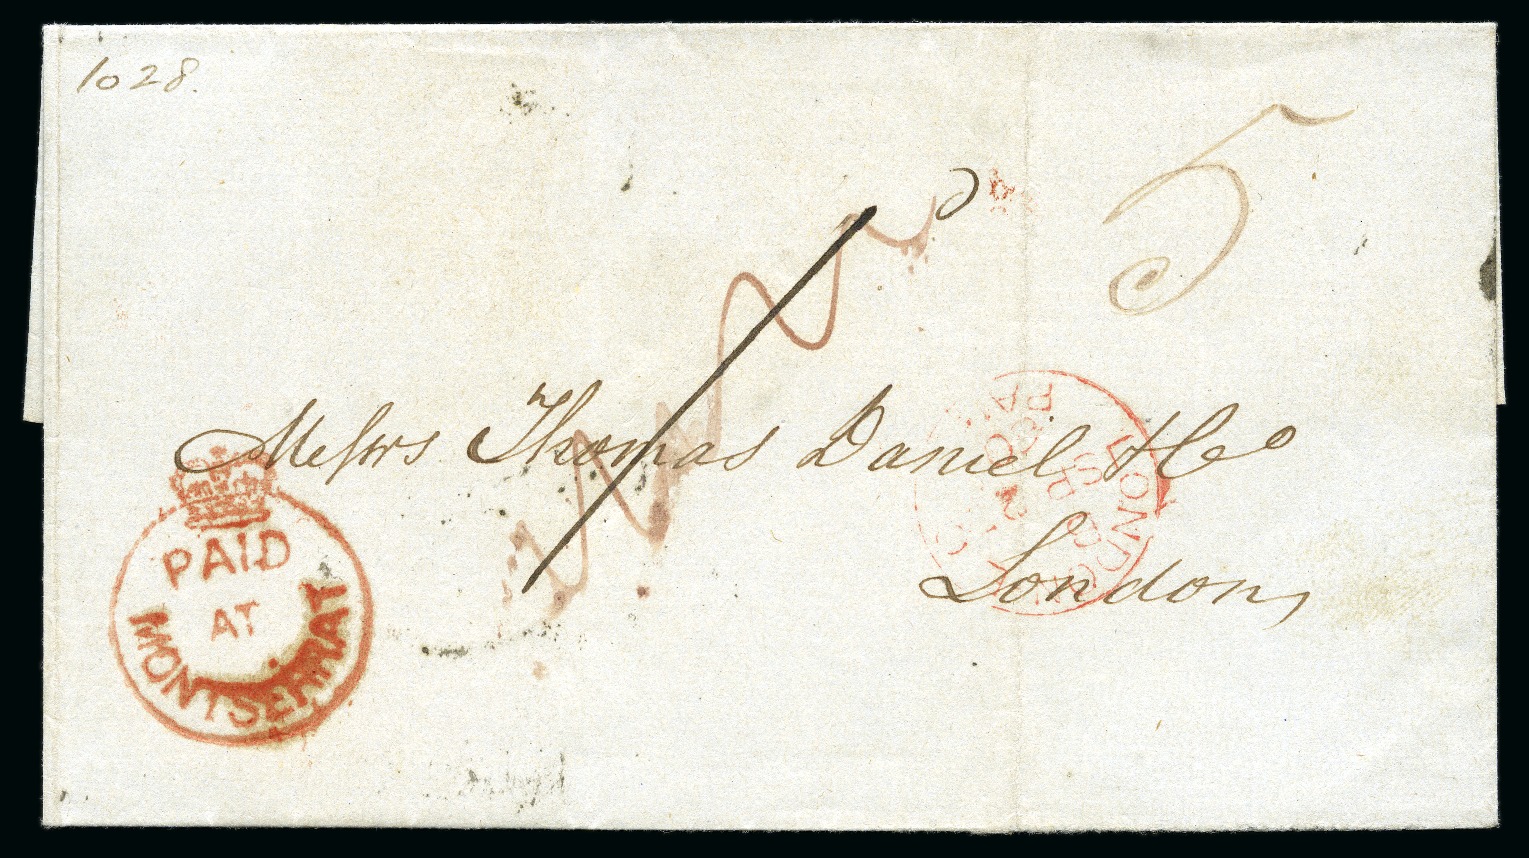 1028.
5
Messrs Thomas Daniel & Co
London,
PAID
AT
MONTSERRAT
LONDON
SP
PAID